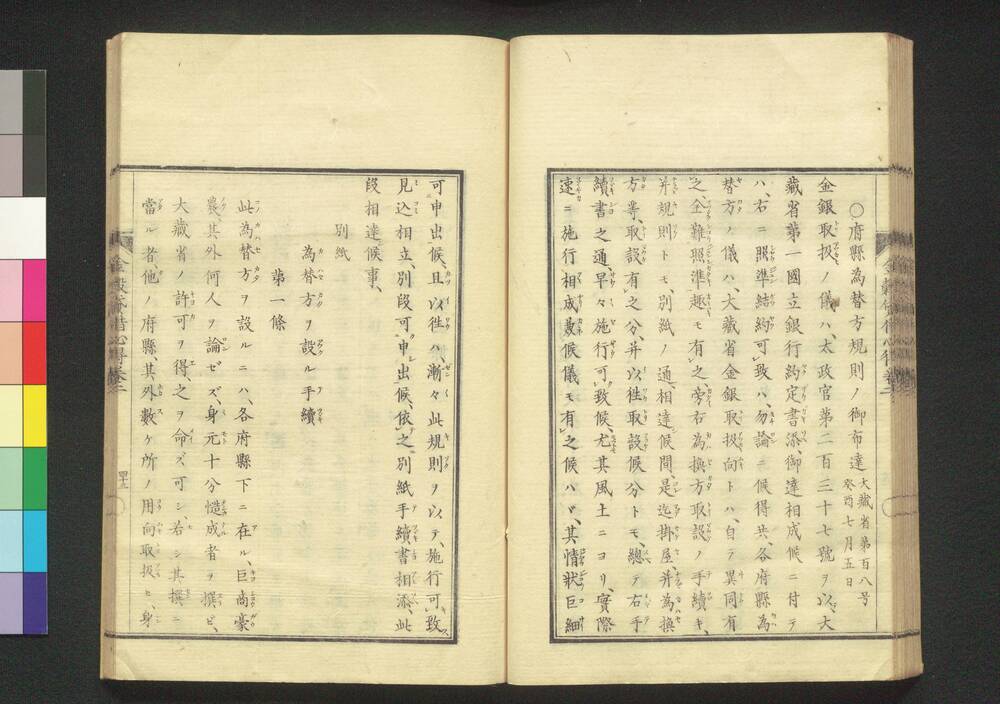 ○府縣為替方規則ノ御布達 大藏省第百八号 癸酉七月五日
金銀取扱ノ儀ハ、太政官第二百三十七號ヲ以、大
藏省第一國立銀行約定書添、御達相成候ニ付テ
ハ、右ニ照準結約可致ハ、勿論ニ候得共、各府縣為
替方ノ儀ハ、大藏省金銀取扱向トハ、自テ異同有
之、全難照準趣モ有之、旁右為換方取設ノ手續キ、
并規則トモ、別紙ノ通、相達候間、是迄掛屋、并為換
方等、取設有之分、并以徃取設候分トモ、總テ右手
續書之通、早々施行可致候、尤其風土ニヨリ、實際
速ニ施行相成兼候儀モ有之候ハヾ、其情狀巨細
可申出候、且以徃ハ、漸々此規則ヲ以テ、施行可致
見込相立、別段可申出候、依之別紙手續書相添、此
段相達候事、
別紙
為替方ヲ設ル手續
第一條
此為替方ヲ設ルニハ、各府縣下ニ在ル、巨商豪
農、其外何人ヲ論ゼズ、身元十分慥成者ヲ撰ビ、
大藏省ノ許可ヲ得、之ヲ命ズ可シ、若シ其撰ニ
當ル者、他ノ府縣其外數ケ所ノ用向取扱ヒ、身
金穀貸借心得卷二
四十三